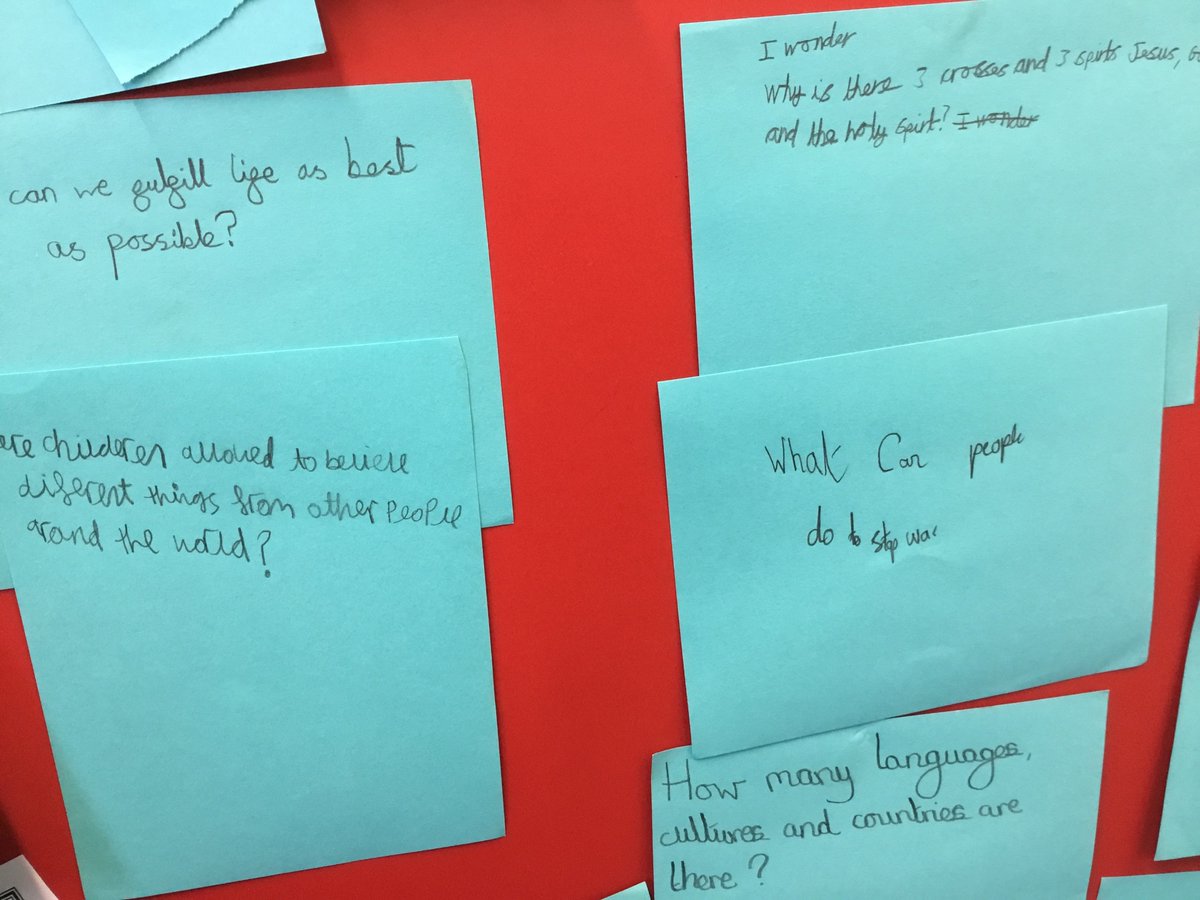 can we fulfill life as best
as possible?
are childeren allowed to believe
diferent things from other people
arond the world?
I wonder
why is there 3 crosses and 3 spirts Jesus,
and the holy spirt? I wonder
What Can people
do to stop war
How many languages,
cultures and countries are
there?